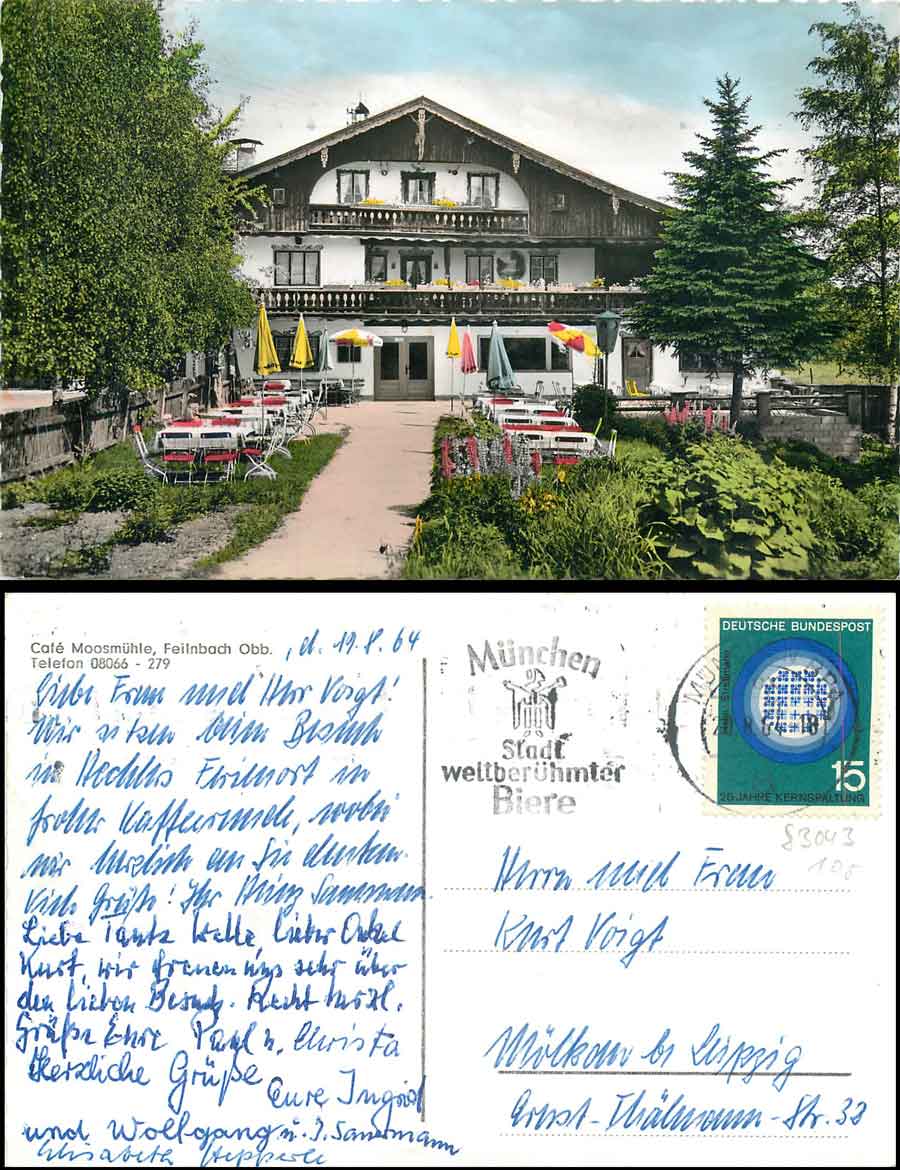 Café Moosmühle, Feilnbach Obb.
Telefon 08066 - 279
, d. 19.8.64
Liebe Frau und Herr Voigt!
Wir sitzen beim Besuch
in Hechlers Ferienort in
froher Kaffeerunde, wobei
wir herzlich an Sie denken.
Viele Grüße! Ihr Heinz Sammann.
Liebe Tante Welle, lieber Onkel
Kurt, wir freuen uns sehr über
den lieben Besuch. Recht herzl.
Grüße Eure Paul u. Christa
Herzliche Grüße
Eure Ingrid
und Wolfgang u. J. Sammann
Elisabeth
München
Stadt
weltberühmter
Biere
DEUTSCHE BUNDESPOST
Hahn Straßmann
15
25 JAHRE KERNSPALTUNG
83043
Herrn und Frau
Kurt Voigt
Mölkau b. Leipzig
Ernst-Thälmann-Str. 38